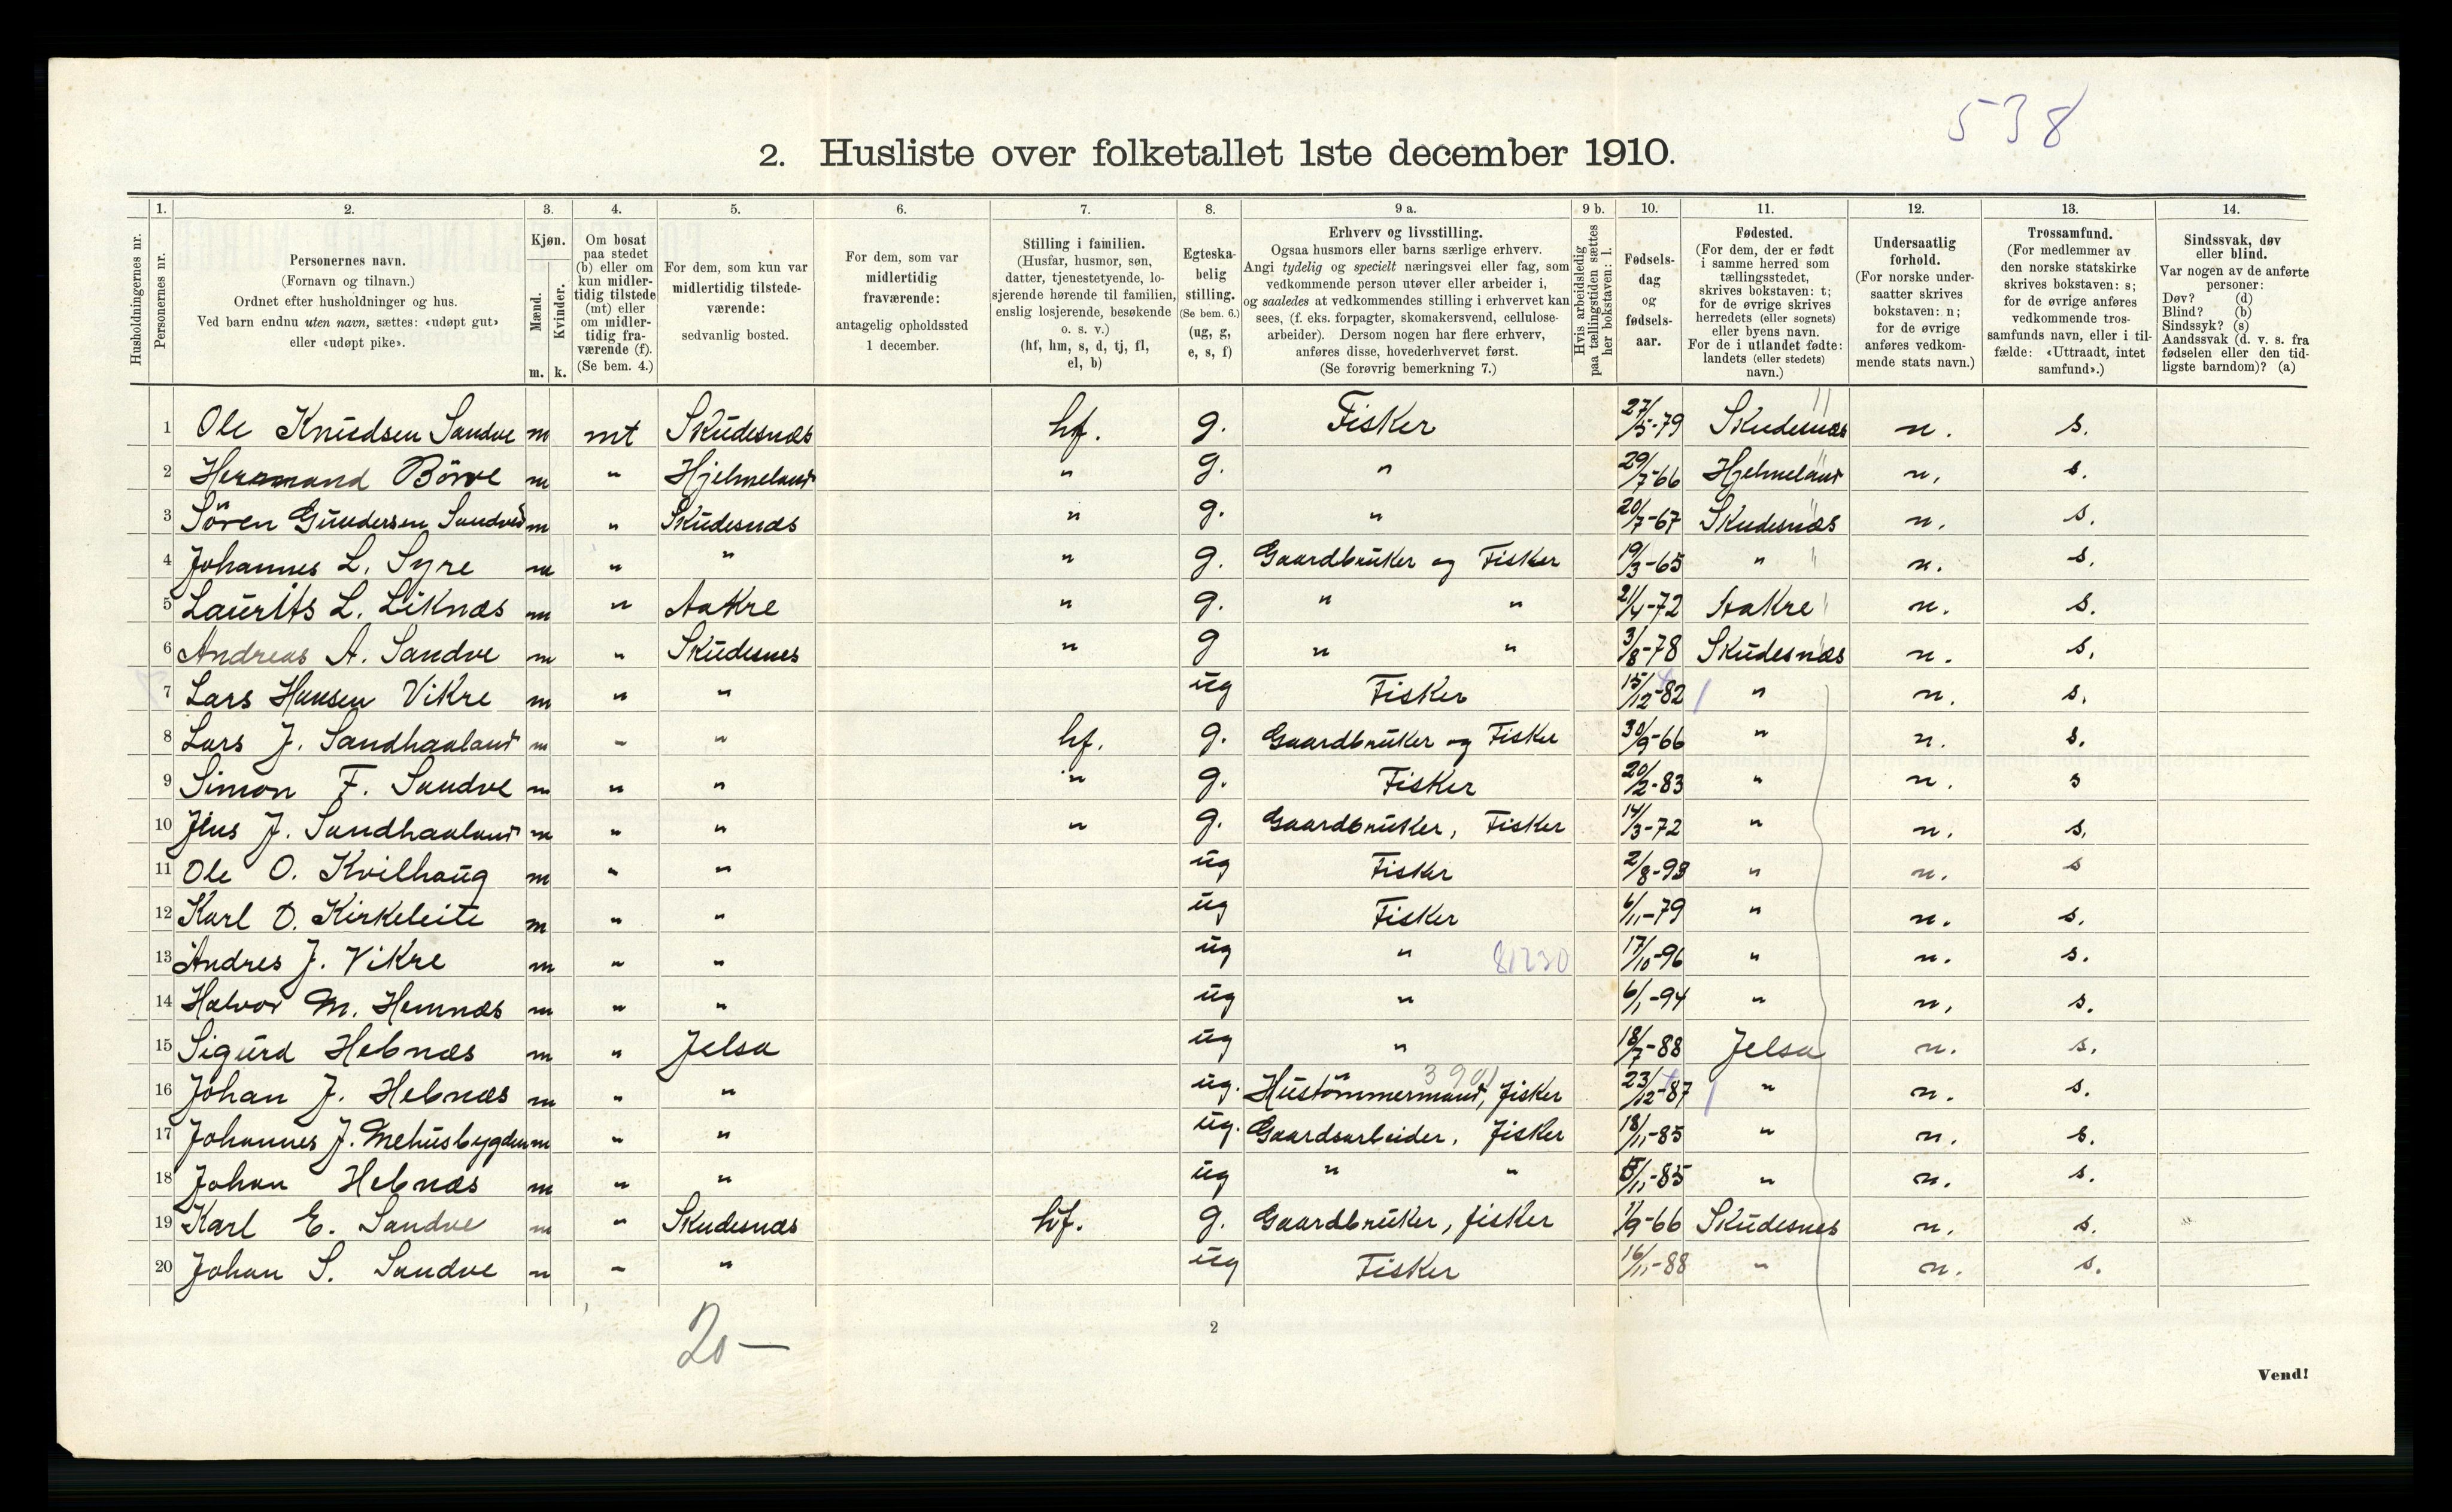 538
2. Husliste over folketallet 1ste december 1910.
Husholdningernes nr.
1. Personernes nr.
2. Personernes navn. (Fornavn og tilnavn.) Ordnet efter husholdninger og hus. Ved barn endnu uten navn, sættes: «udøpt gut» eller «udøpt pike».
3. Kjøn. Mænd. m. Kvinder. k.
4. Om bosat paa stedet (b) eller om kun midlertidig tilstede (mt) eller om midlertidig fraværende (f). (Se bem. 4.)
5. For dem, som kun var midlertidig tilstedeværende: sedvanlig bosted.
6. For dem, som var midlertidig fraværende: antagelig opholdssted 1 december.
7. Stilling i familien. (Husfar, husmor, søn, datter, tjenestetyende, losjerende hørende til familien, enslig losjerende, besøkende o. s. v.) (hf, hm, s, d, tj, fl, el, b)
8. Egteskabelig stilling. (Se bem. 6.) (ug, g, e, s, f)
9 a. Erhverv og livsstilling. Ogsaa husmors eller barns særlige erhverv. Angi tydelig og specielt næringsvei eller fag, som vedkommende person utøver eller arbeider i, og saaledes at vedkommendes stilling i erhvervet kan sees, (f. eks. forpagter, skomakersvend, cellulosearbeider). Dersom nogen har flere erhverv, anføres disse, hovederhvervet først. (Se forøvrig bemerkning 7.)
9 b. Hvis arbeidsledig paa tællingstiden sættes her bokstaven: l.
10. Fødselsdag og fødselsaar.
11. Fødested. (For dem, der er født i samme herred som tællingsstedet, skrives bokstaven: t; for de øvrige skrives herredets (eller sognets) eller byens navn. For de i utlandet fødte: landets (eller stedets) navn.)
12. Undersaatlig forhold. (For norske undersaatter skrives bokstaven: n; for de øvrige anføres vedkommende stats navn.)
13. Trossamfund. (For medlemmer av den norske statskirke skrives bokstaven: s; for de øvrige anføres vedkommende trossamfunds navn, eller i tilfælde: «Uttraadt, intet samfund».)
14. Sindssvak, døv eller blind. Var nogen av de anførte personer: Døv? (d) Blind? (b) Sindssyk? (s) Aandssvak (d. v. s. fra fødselen eller den tidligste barndom)? (a)
1 Ole Knudsen Sandve m mt Skudesnæs hf. g. Fisker 27/5-79 Skudesnæs n. s.
2 Hermand Börve m " Hjelmeland " g. " 29/7-66 Hjelmeland n. s.
3 Sören Gundersen Sandved m " Skudesnæs " g. " 20/7-67 Skudesnæs n. s.
4 Johannes L. Syre m " " " g. Gaardbruker og Fisker 19/3-65 " n. s.
5 Laurits L. Liknæs m " Aakre " g. " " 21/4-72 Aakre n. s.
6 Andreas A. Sandve m " Skudesnes " g " " 3/8-78 Skudesnæs n. s.
7 Lars Hansen Vikre m " " ug Fisker 15/12-82 " n. s.
8 Lars J. Sandhaaland m " " hf. g. Gaardbruker og Fisker 30/9-66 " n. s.
9 Simon F. Sandve m " " " g. Fisker 20/2-83 " n. s
10 Jens J. Sandhaaland m " " " g. Gaardbruker, Fisker 14/3-72 " n. s.
11 Ole O. Kvilhaug m " " ug Fisker 2/8-93 " n. s
12 Karl O. Kirkeleite m " " ug Fisker 6/11-79 " n. s.
13 Andres J. Vikre m " " ug " 17/10-96 " n. s.
14 Halvor M. Hemnæs m " " ug " 6/1-94 " n. s.
15 Sigurd Hebnæs m " Jelsa ug " 18/7-88 Jelsa n. s.
16 Johan J. Hebnæs m " " ug. Hustömmermand, fisker 23/12-87 " n. s.
17 Johannes J. Mehusbygden m " " ug. Gaardsarbeider, fisker 18/11-85 " n. s.
18 Johan Hebnæs m " " ug " " /11-85 " n. s.
19 Karl E. Sandve m " Skudesnæs hf. g. Gaardbruker, fisker 1/9-66 Skudesnes n. s.
20 Johan S. Sandve m " " ug Fisker 16/11-88 " n. s.
20 —
2
Vend!